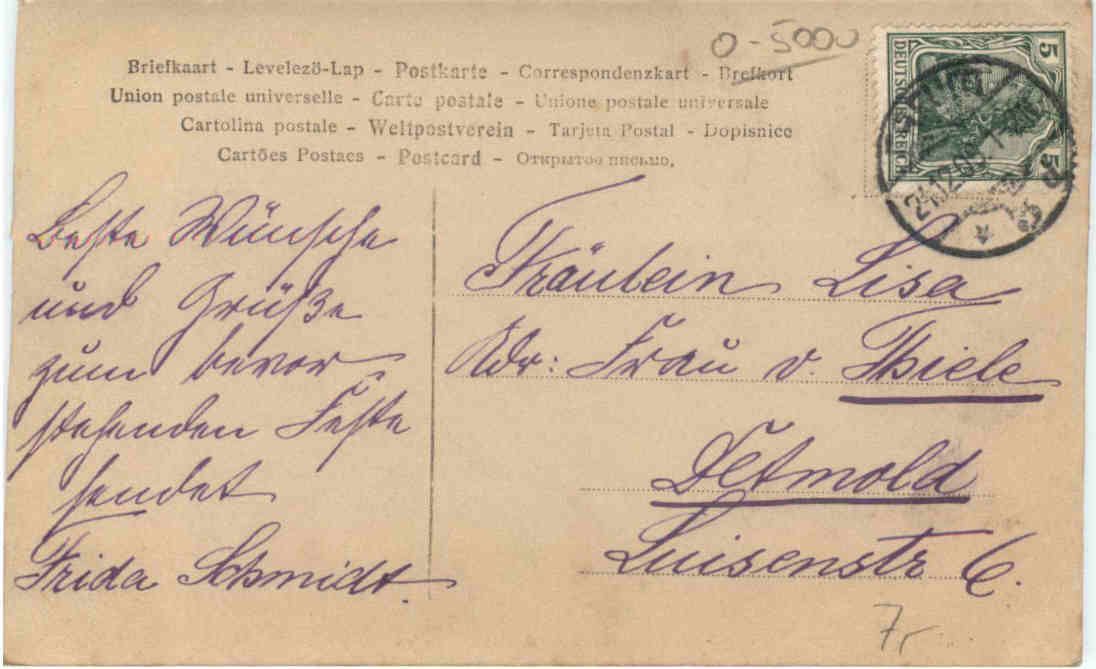 O-5000
Briefkaart - Levelezö-Lap - Postkarte - Correspondenzkart - Brefkort
Union postale universelle - Carte postale - Unione postale universale
Cartolina postale - Weltpostverein - Tarjeta Postal - Dopisnice
Cartões Postaes - Postcard - Открытое письмо.
5
5
DEUTSCHES REICH
Beste Wünsche
und Grüße
zum bevor
stehenden Feste
sendet
Frida Schmidt.
Fräulein Lisa
Adr: Frau v. Thiele
Detmold
Luisenstr 6.